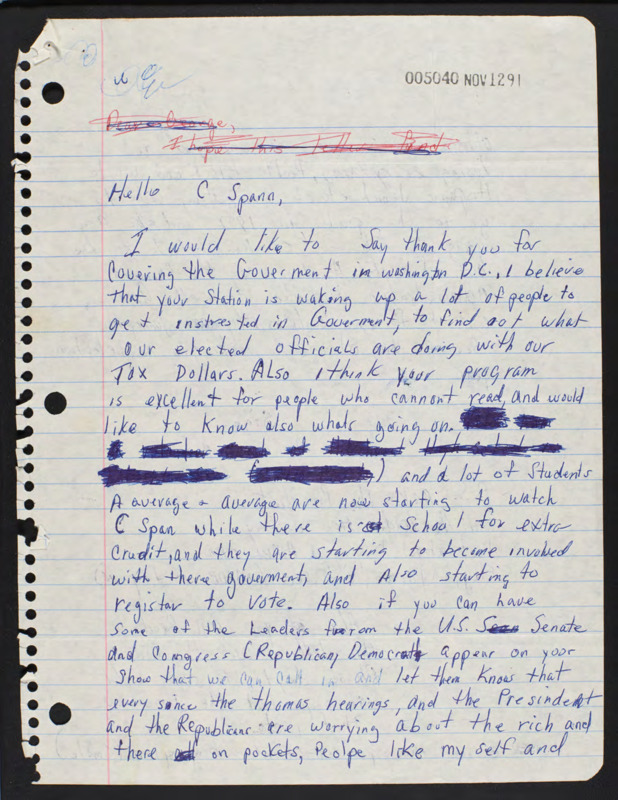 005040 NOV 12 91
Dear George,
I hope this letter
Hello C Spann,
I would like to Say thank you for
Covering the Goverment in washington D.C., I believe
that your Station is waking up a lot of people to
get instrested in Goverment, to find out what
our elected officials are doing with our
Tax Dollars. Also I think your program
is excellent for people who cannont read, and would
like to know also whats going on.
) and a lot of Students
A average & average are now starting to watch
C Span while there is School for extra
Credit, and they are starting to become involved
with there goverment, and Also starting to
registar to vote. Also if you can have
some of the Leaders from the U.S. Senate
and Congress (Republican, Democrat appear on your
show that we can call in and let them know that
every since the thomas hearings, and the Presindent
and the Republicans are worrying about the rich and
there on pockets, Peolpe, like my self and